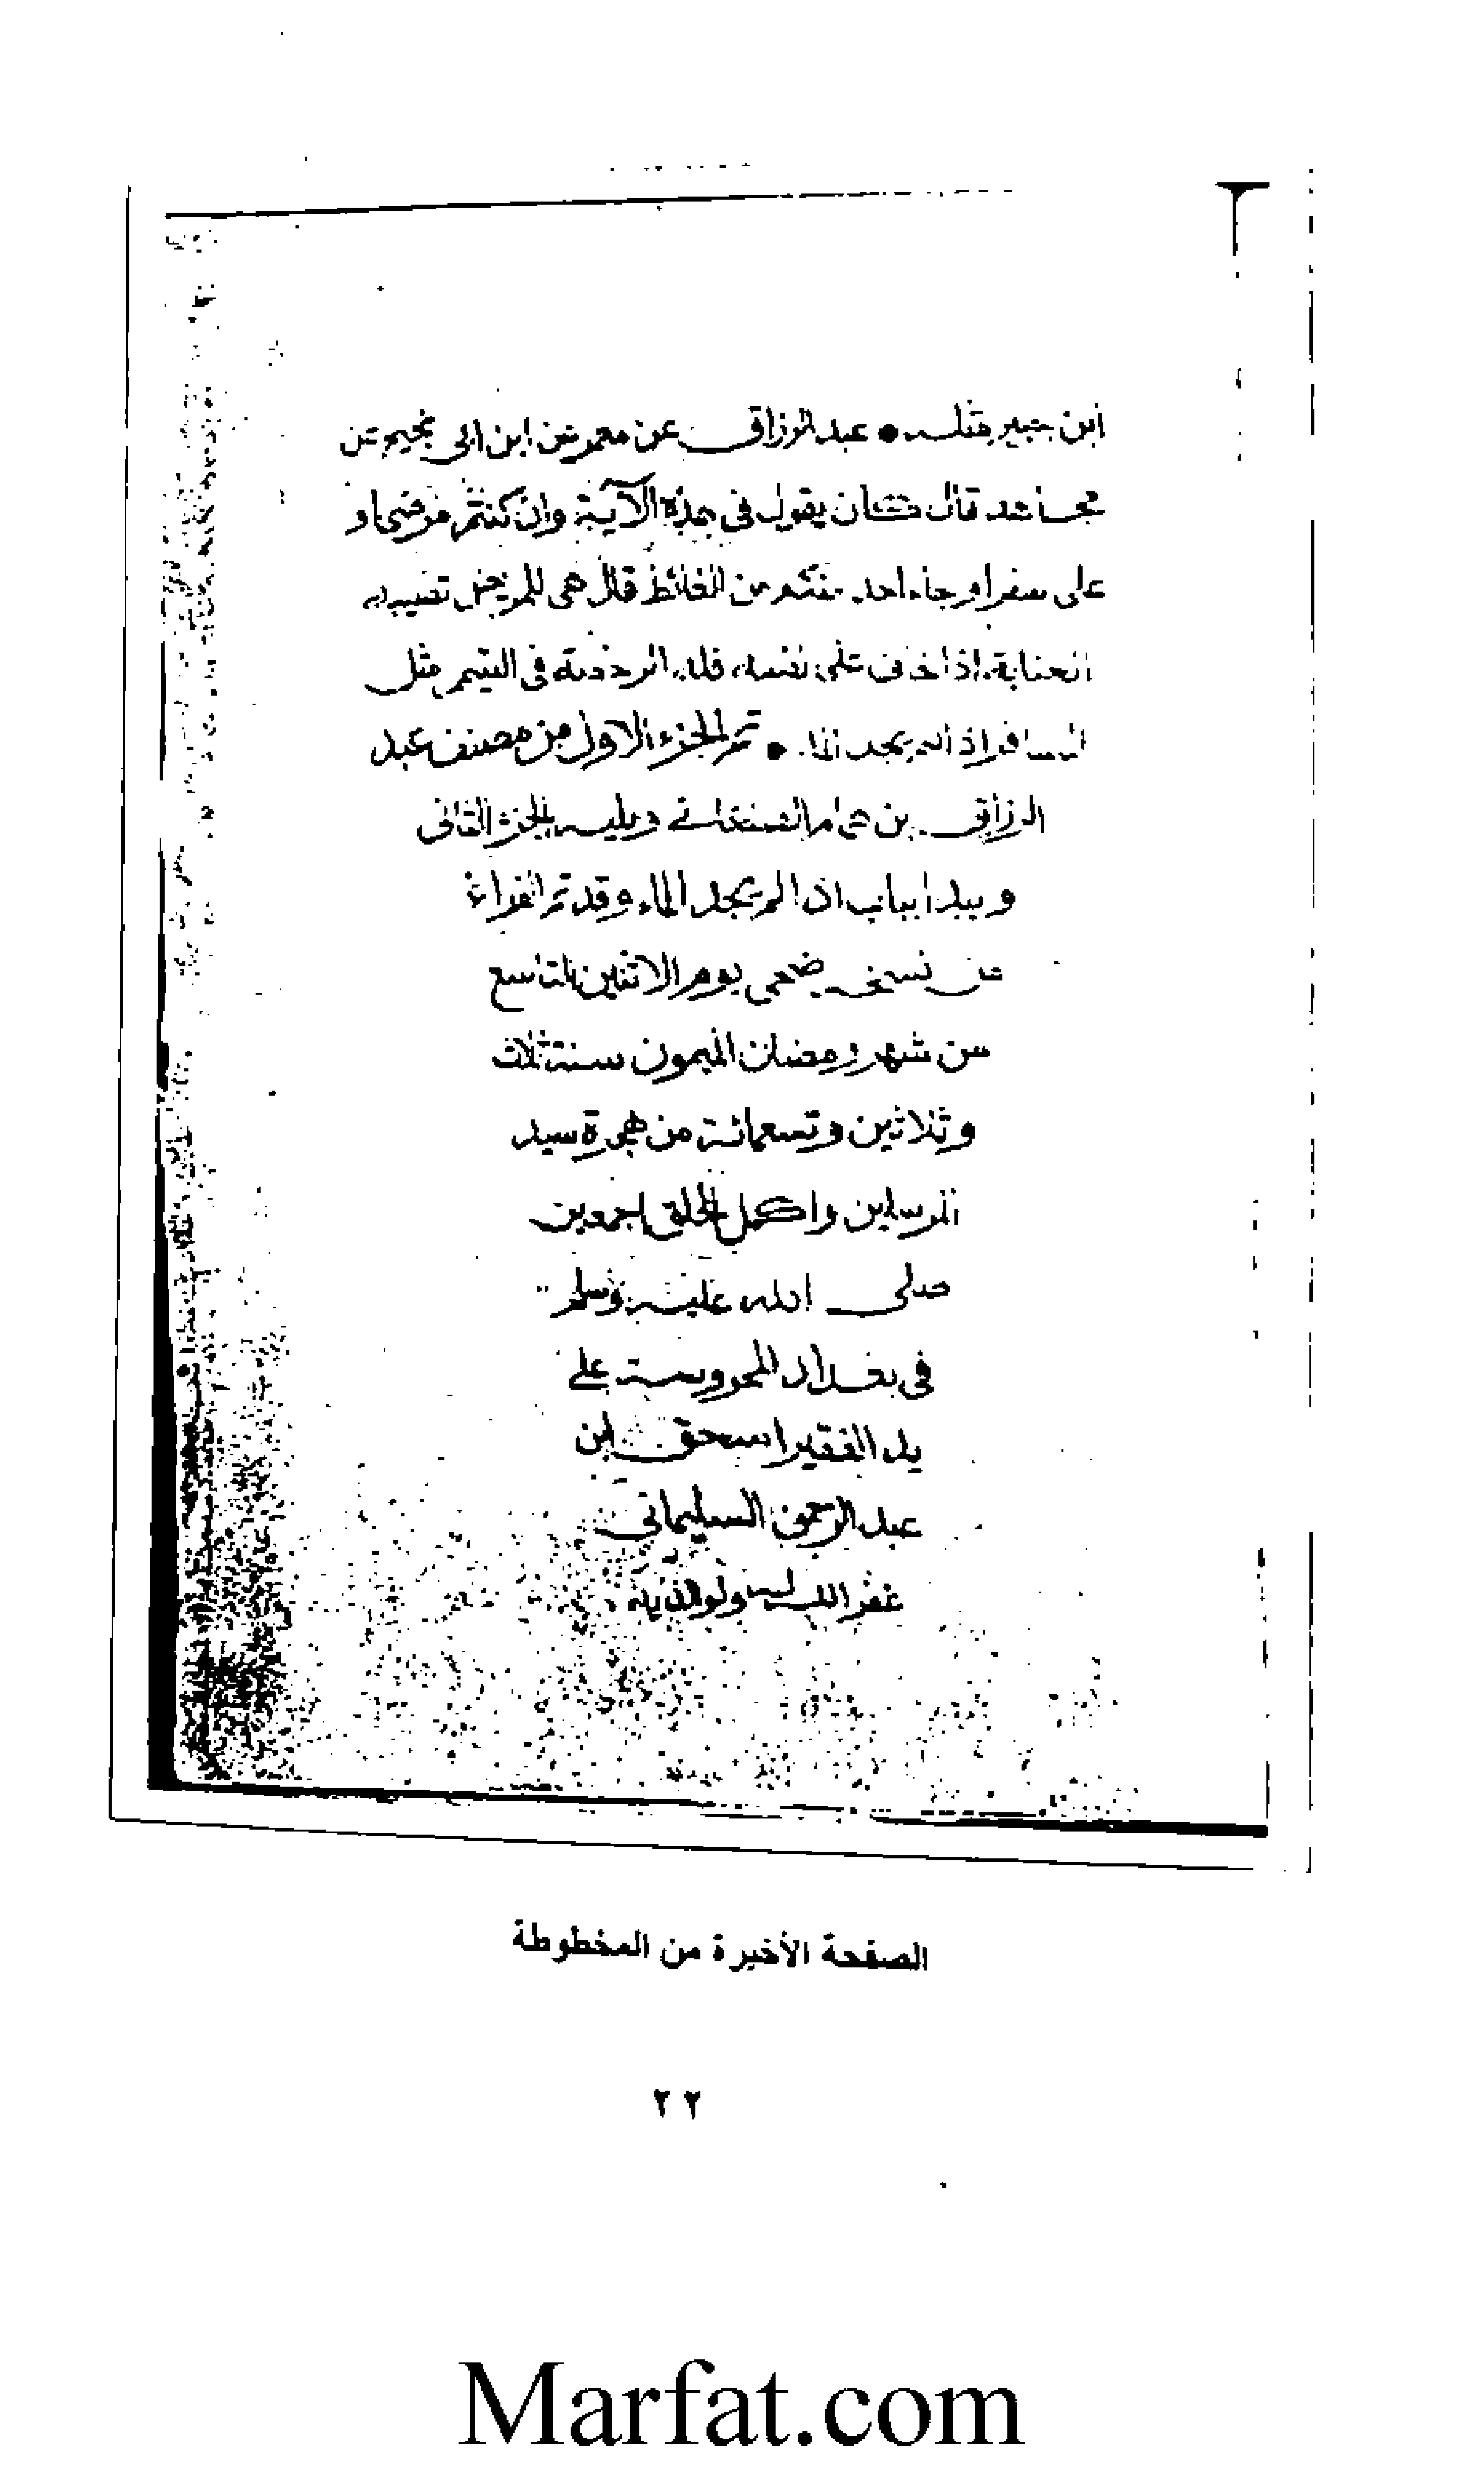 ابن جبير مثله • عبد الرزاق عن معمر عن ابن ابي نجيح عن
مجاهد قال كان يقول في هذه الآية وان كنتم مرضى او
على سفر او جاء احد منكم من الغائط قال هي للمريض تصيبه
الجنابة اذا خاف على نفسه فله الرخصة في التيمم مثل
المسافر اذا لم يجد الماء • تم الجزء الاول من مصنف عبد
الرزاق بن همام الصنعاني ويليه الجزء الثاني
ويبدا بباب اذا لم يجد الماء وقد تم الفراغ
من نسخه ضحى يوم الاثنين التاسع
من شهر رمضان الميمون سنة ثلاث
وثلاثين وتسعمائة من هجرة سيد
المرسلين واكمل الخلق اجمعين
صلى الله عليه وسلم
في بغداد المحروسة على
يد الفقير اسحق ابن
عبد الرحمن السليماني
غفر الله له ولوالديه
الصفحة الأخيرة من المخطوطة
٢٢
Marfat.com